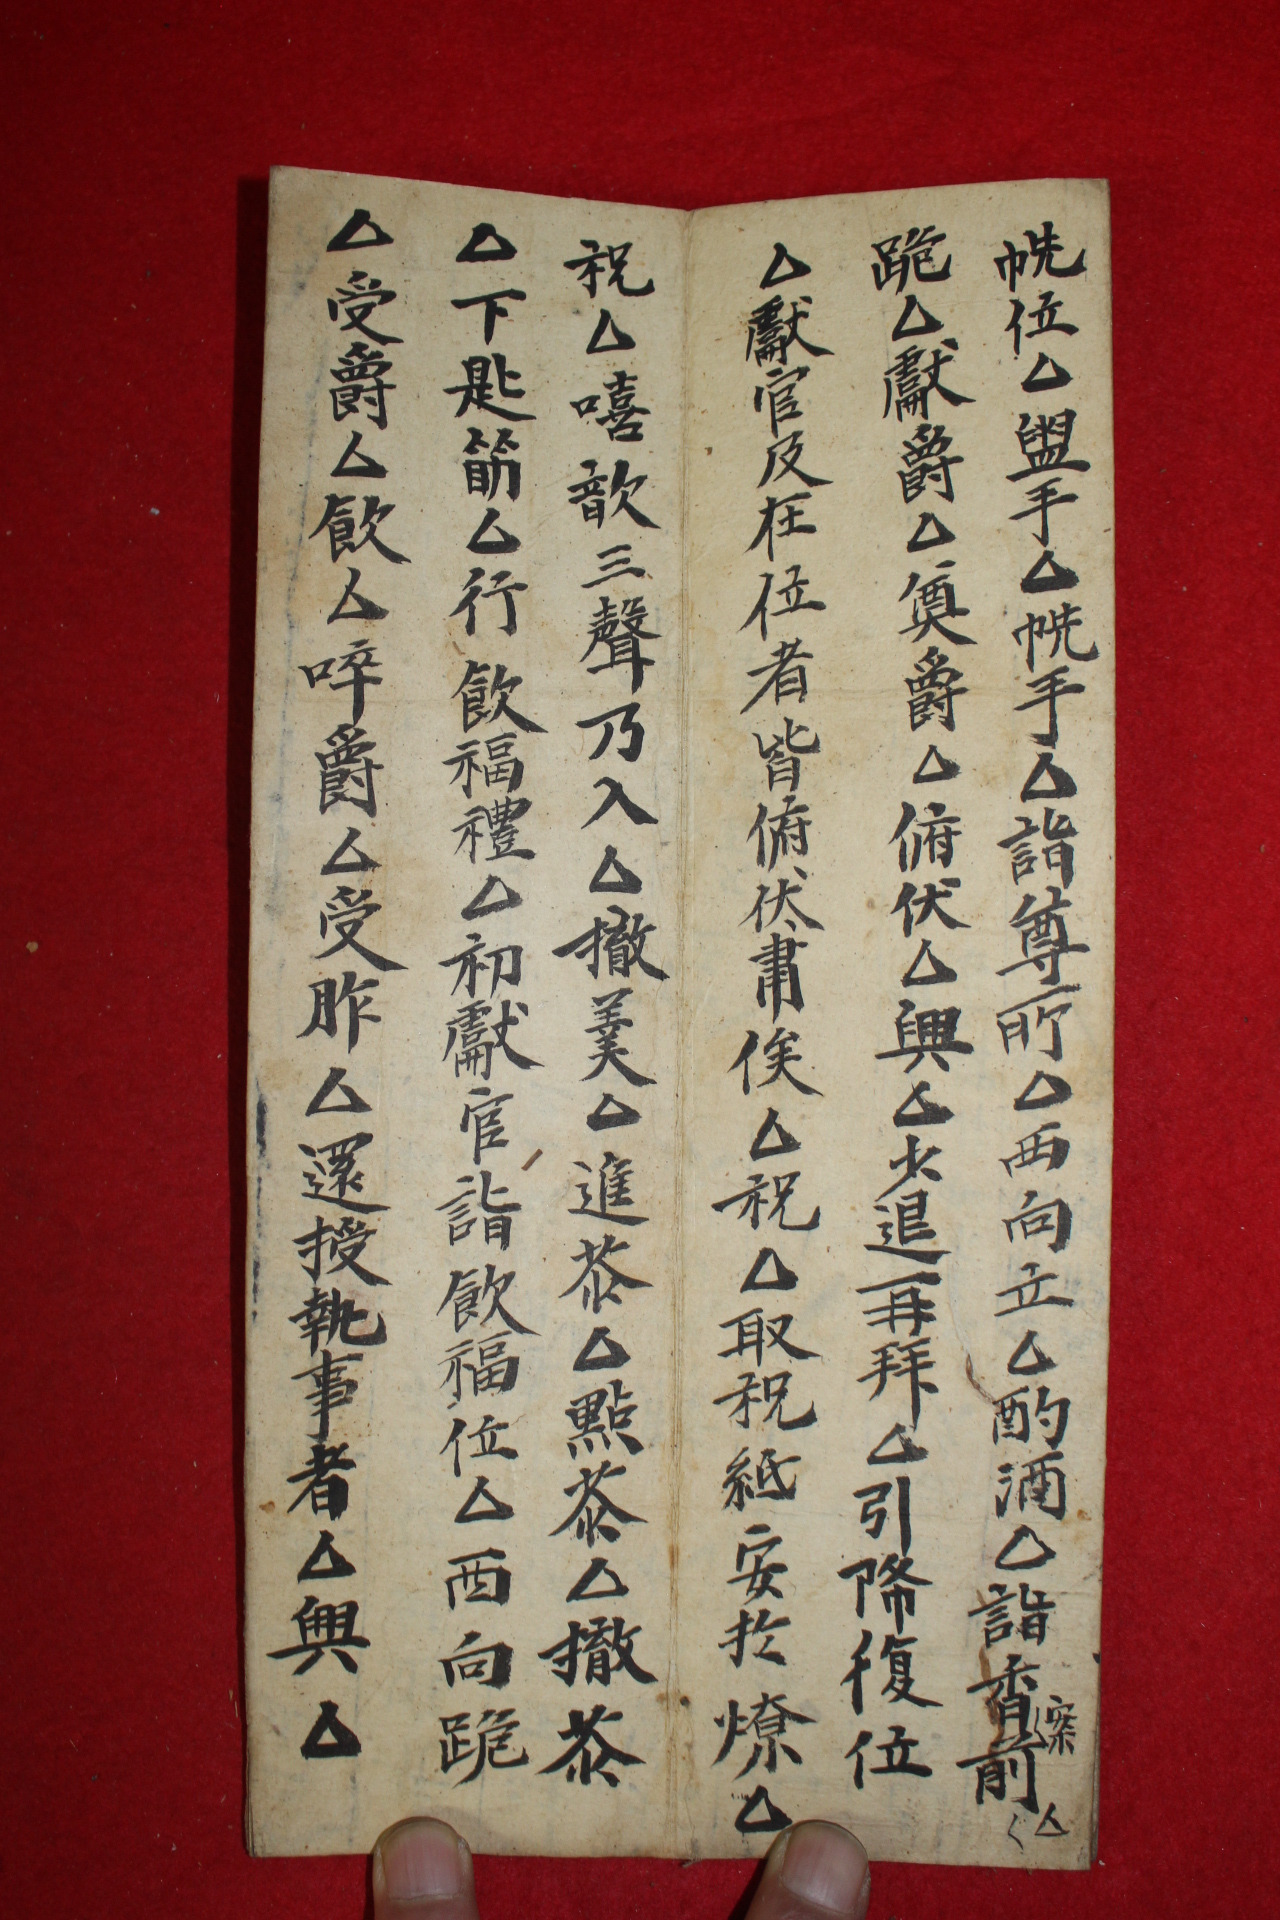 帨位△盥手△帨手△詣尊所△西向立△酌酒△詣香案前△
跪△獻爵△奠爵△俯伏△興△少退再拜△引降復位
△獻官及在位者皆俯伏肅俟△祝△取祝紙安於燎△
祝△嘻歆三聲乃入△撤羹△進茶△點茶△撤茶
△下匙筯△行飮福禮△初獻官詣飮福位△西向跪
△受爵△飮△啐爵△受胙△還授執事者△興△